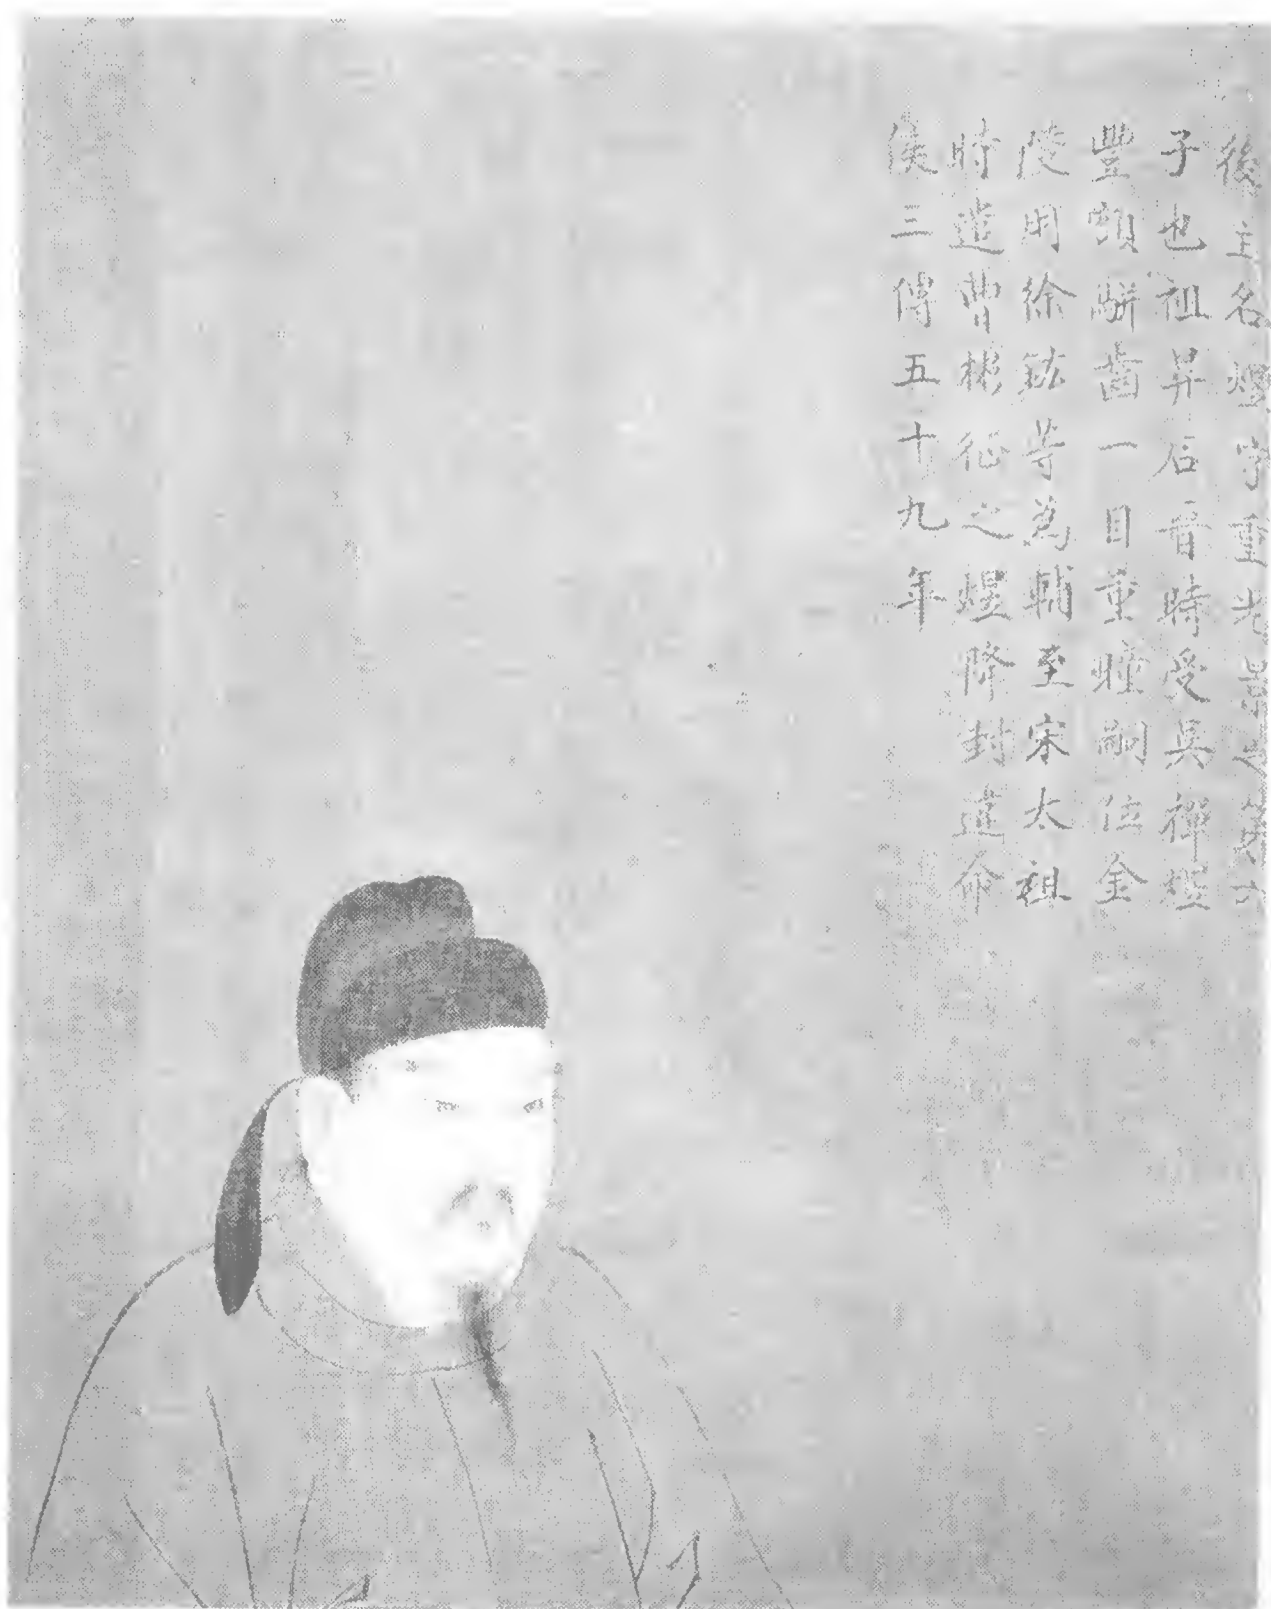 後主名煜字重光景之第六
子也祖昇后晉時受吳禪煜
豐額駢齒一目重瞳嗣位金
陵用徐鉉等為輔至宋太祖
時遣曹彬征之煜降封違命
侯三傳五十九年